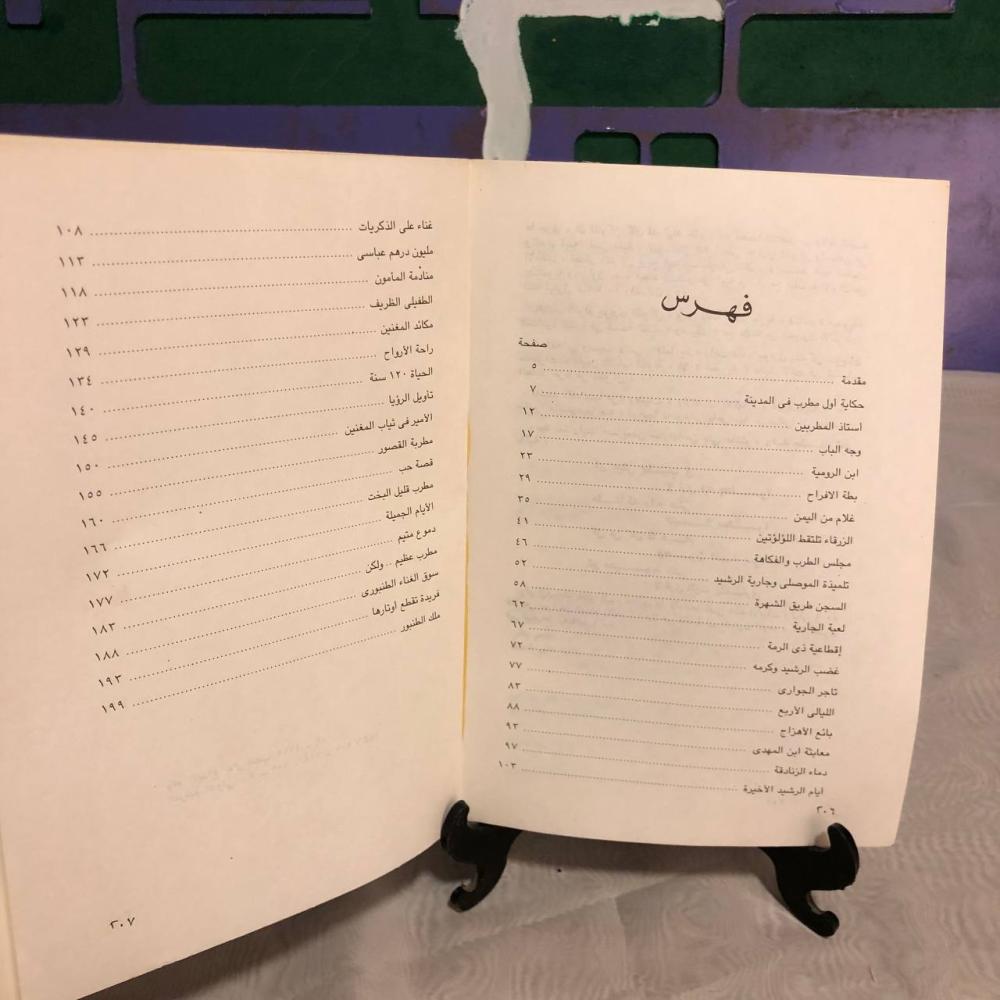 فهرس
صفحة
مقدمة ..... ٥
حكاية أول مطرب فى المدينة ..... ٧
أستاذ المطربين ..... ١٢
وجه الباب ..... ١٧
ابن الرومية ..... ٢٣
بطة الأفراح ..... ٢٩
غلام من اليمن ..... ٣٥
الزرقاء تلتقط اللؤلؤتين ..... ٤١
مجلس الطرب والفكاهة ..... ٤٦
تلميذة الموصلى وجارية الرشيد ..... ٥٢
السجن طريق الشهرة ..... ٥٨
لعبة الجارية ..... ٦٢
إقطاعية ذى الرمة ..... ٦٧
غضب الرشيد وكرمه ..... ٧٢
تاجر الجوارى ..... ٧٧
الليالى الأربع ..... ٨٣
بائع الأهزاج ..... ٨٨
معابثة ابن المهدى ..... ٩٣
دماء الزنادقة ..... ٩٧
أيام الرشيد الأخيرة ..... ١٠٣
٢٠٦
غناء على الذكريات ..... ١٠٨
مليون درهم عباسى ..... ١١٣
منادمة المأمون ..... ١١٨
الطفيلى الظريف ..... ١٢٣
مكائد المغنين ..... ١٢٩
راحة الأرواح ..... ١٣٤
الحياة ١٢٠ سنة ..... ١٤٠
تأويل الرؤيا ..... ١٤٥
الأمير فى ثياب المغنين ..... ١٥٠
مطربة القصور ..... ١٥٥
قصة حب ..... ١٦٠
مطرب قليل البخت ..... ١٦٦
الأيام الجميلة ..... ١٧٢
دموع متيم ..... ١٧٧
مطرب عظيم .. ولكن ..... ١٨٣
سوق الغناء الطنبورى ..... ١٨٨
فريدة تقطع أوتارها ..... ١٩٣
ملك الطنبور ..... ١٩٩
٢٠٧